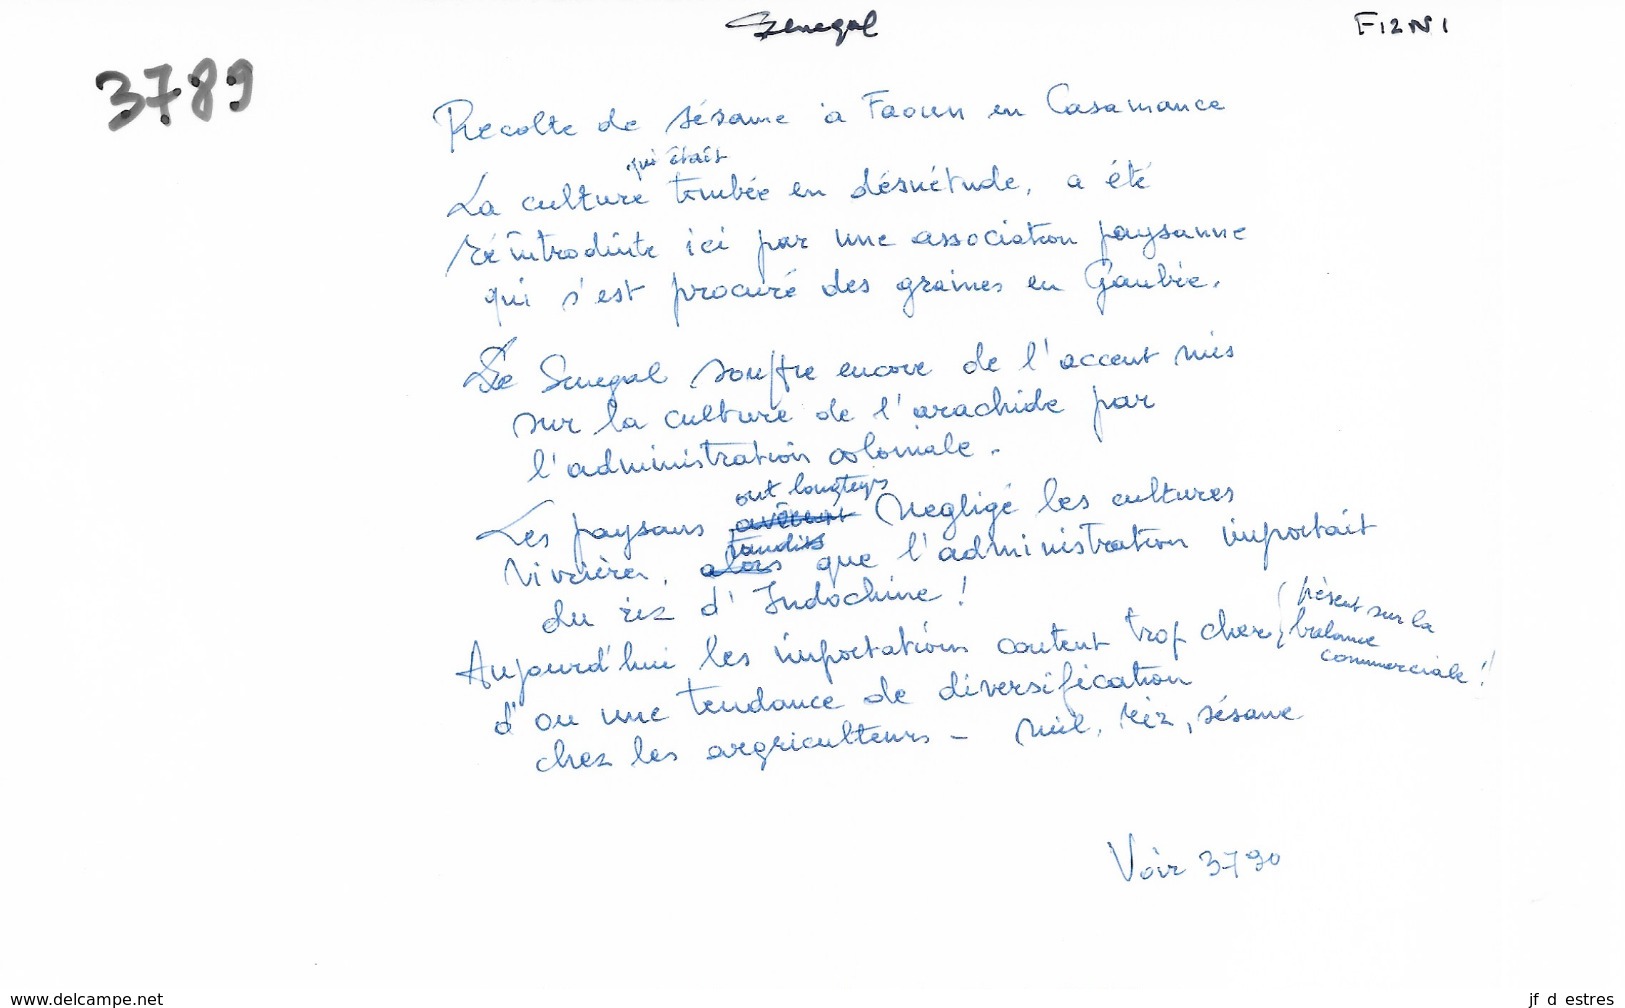 Senegal
F12N1
3789
Récolte de sésame à Faoun en Casamance
qui était
La culture tombée en désuétude, a été
réintroduite ici par une association paysanne
qui s'est procuré des graines en Gambie.
Le Senegal souffre encore de l'accent mis
sur la culture de l'arachide par
l'administration coloniale.
ont longtemps
Les paysans avaient négligé les cultures
tandis
vivrières, alors que l'administration importait
du riz d'Indochine !
Aujourd'hui les importations coutent trop cher (pèsent sur la
balance
commerciale !)
d'ou une tendance de diversification
chez les argriculteurs - mil, riz, sésame
Voir 3790
www.delcampe.net
jf d estres